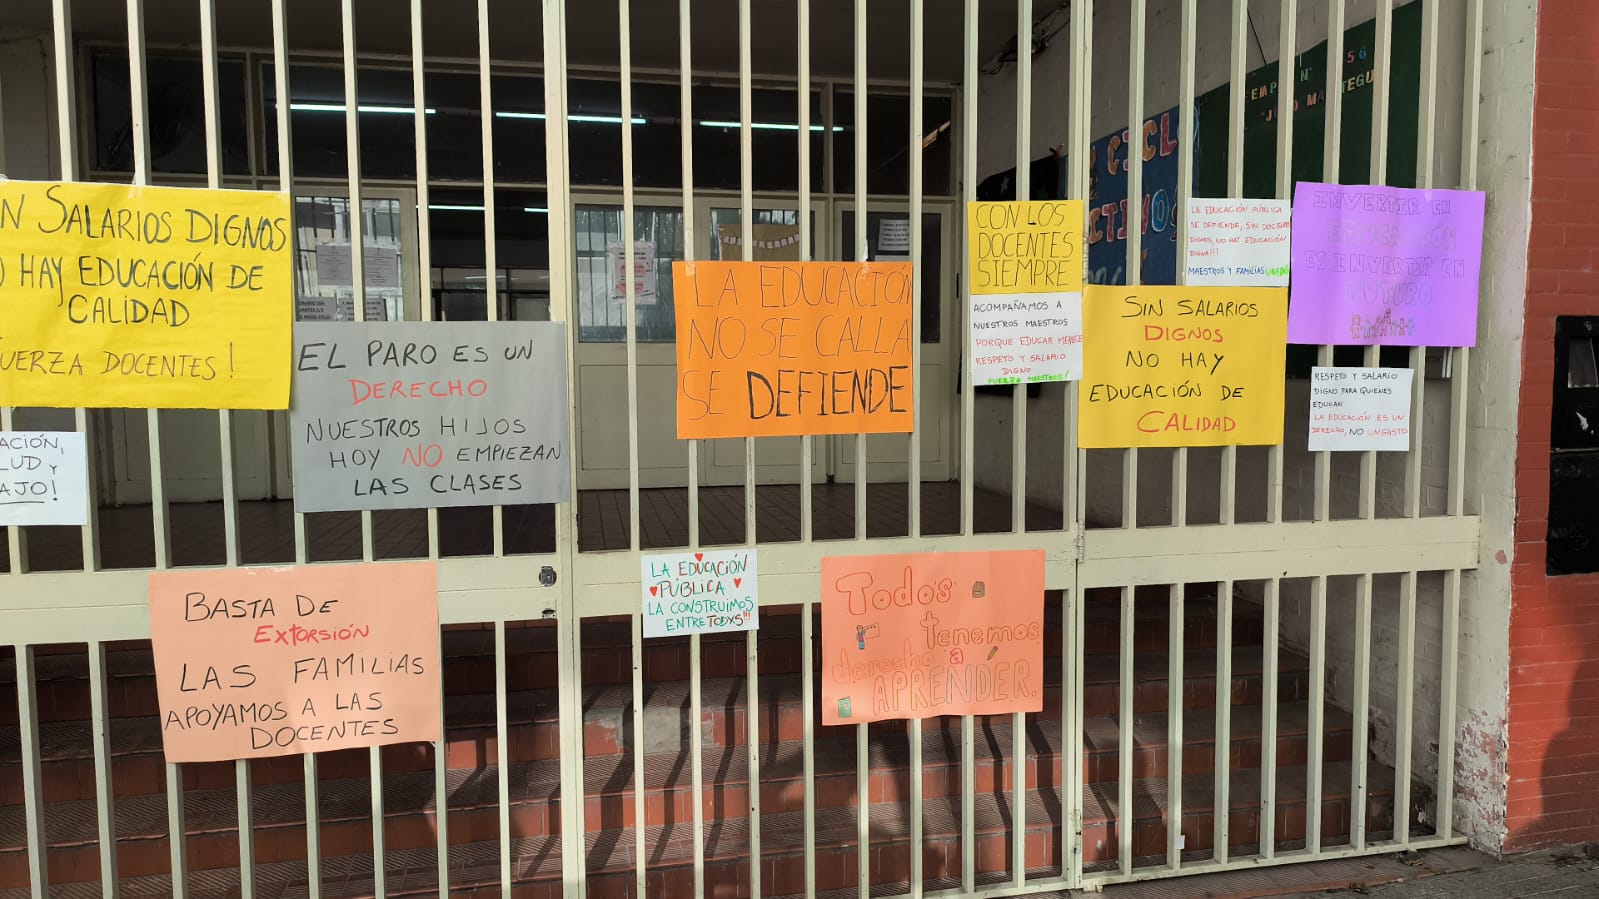 SALARIOS DIGNOS
HAY EDUCACIÓN DE
CALIDAD
DOCENTES!
EL PARO ES UN
DERECHO
NUESTROS HIJOS
HOY NO EMPIEZAN
LAS CLASES
LA EDUCACIÓN
NO SE CALLA
SE DEFIENDE
CON LOS
DOCENTES
SIEMPRE
ACOMPAÑAMOS A
NUESTROS MAESTROS
PORQUE EDUCAR MERECE
RESPETO Y SALARIO
DIGNO
FUERZA MAESTROS!
LA EDUCACIÓN PÚBLICA
SE DEFIENDE, SIN DOCENTES
DIGNOS, NO HAY EDUCACIÓN
DIGNA!!!
MAESTROS Y FAMILIAS UNIDOS
SIN SALARIOS
DIGNOS
NO HAY
EDUCACIÓN DE
CALIDAD
INVERTIR EN
EDUCACIÓN
ES INVERTIR EN
FUTURO
RESPETO Y SALARIO
DIGNO PARA QUIENES
EDUCAN
LA EDUCACIÓN ES UN
DERECHO, NO UN GASTO
CICLO
BASTA DE
EXTORSIÓN
LAS FAMILIAS
APOYAMOS A LAS
DOCENTES
LA EDUCACIÓN
PÚBLICA
LA CONSTRUIMOS
ENTRE TODXS!!!
Todos
tenemos
derecho a
APRENDER.